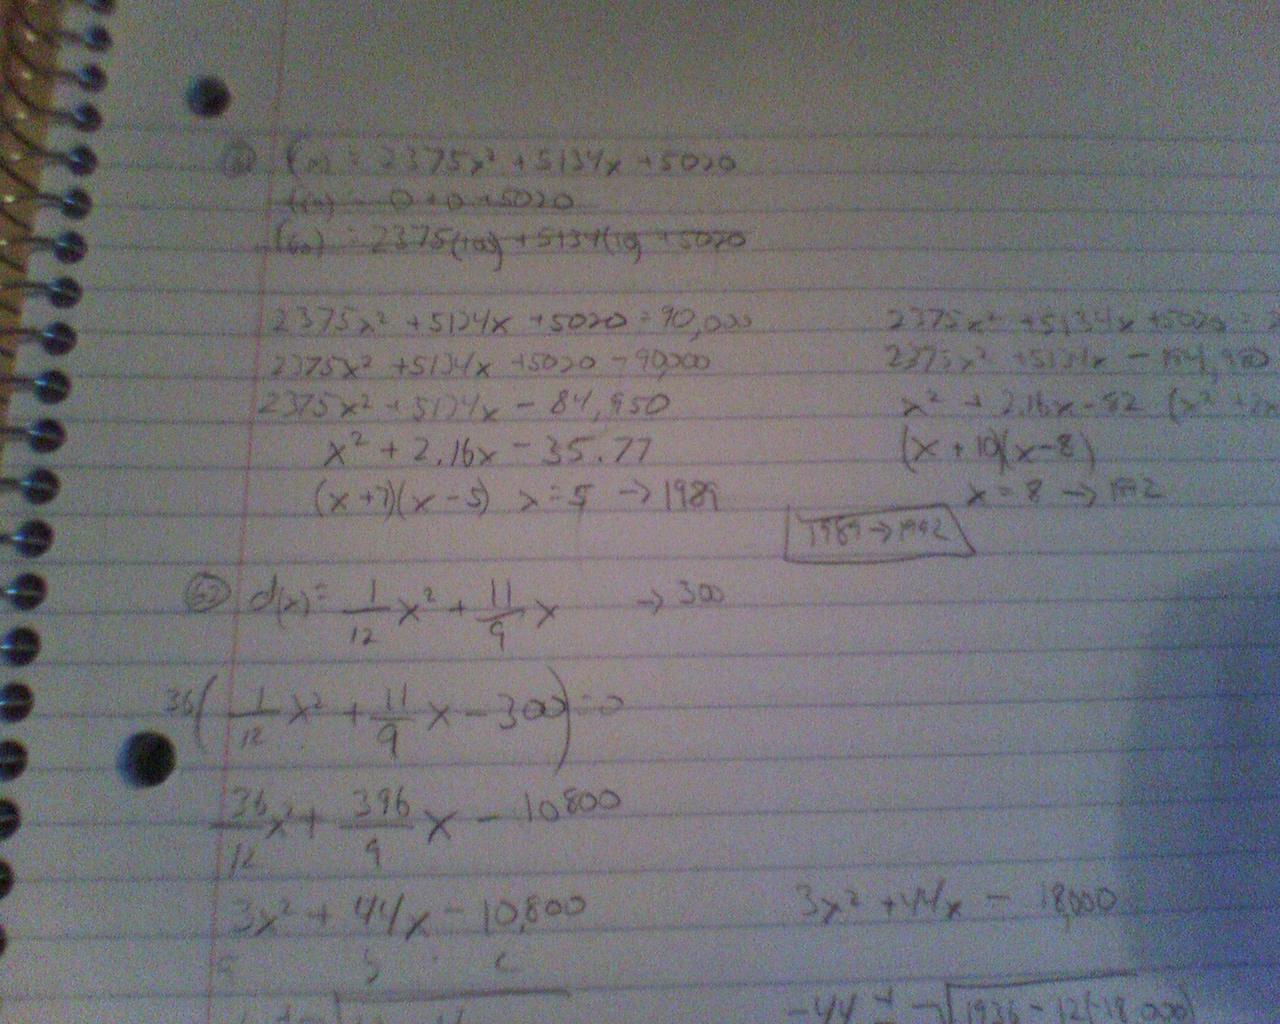 f(x) = 2375x² + 5134x + 5020
f(0) = 0 + 0 + 5020
= 2375(100) + 5134(10) + 5020
2375x² + 5134x + 5020 = 90,000
2375x² + 5134x + 5020 - 90,000
2375x² + 5134x - 84,950
x² + 2.16x - 35.77
(x+7)(x-5) x=5 → 1989
2375x² + 5134x + 5020 =
2375x² + 5134x - 194,980
x² + 2.16x - 82 (x² + 2x
(x+10)(x-8)
x = 8 → 1992
1989 → 1992
d(x) = 1/12 x² + 11/9 x → 300
36( 1/12 x² + 11/9 x - 300) = 0
36/12 x² + 396/9 x - 10800
3x² + 44x - 10,800
a b c
3x² + 44x - 18,000
-44 ± √1936 - 12(-18,000)